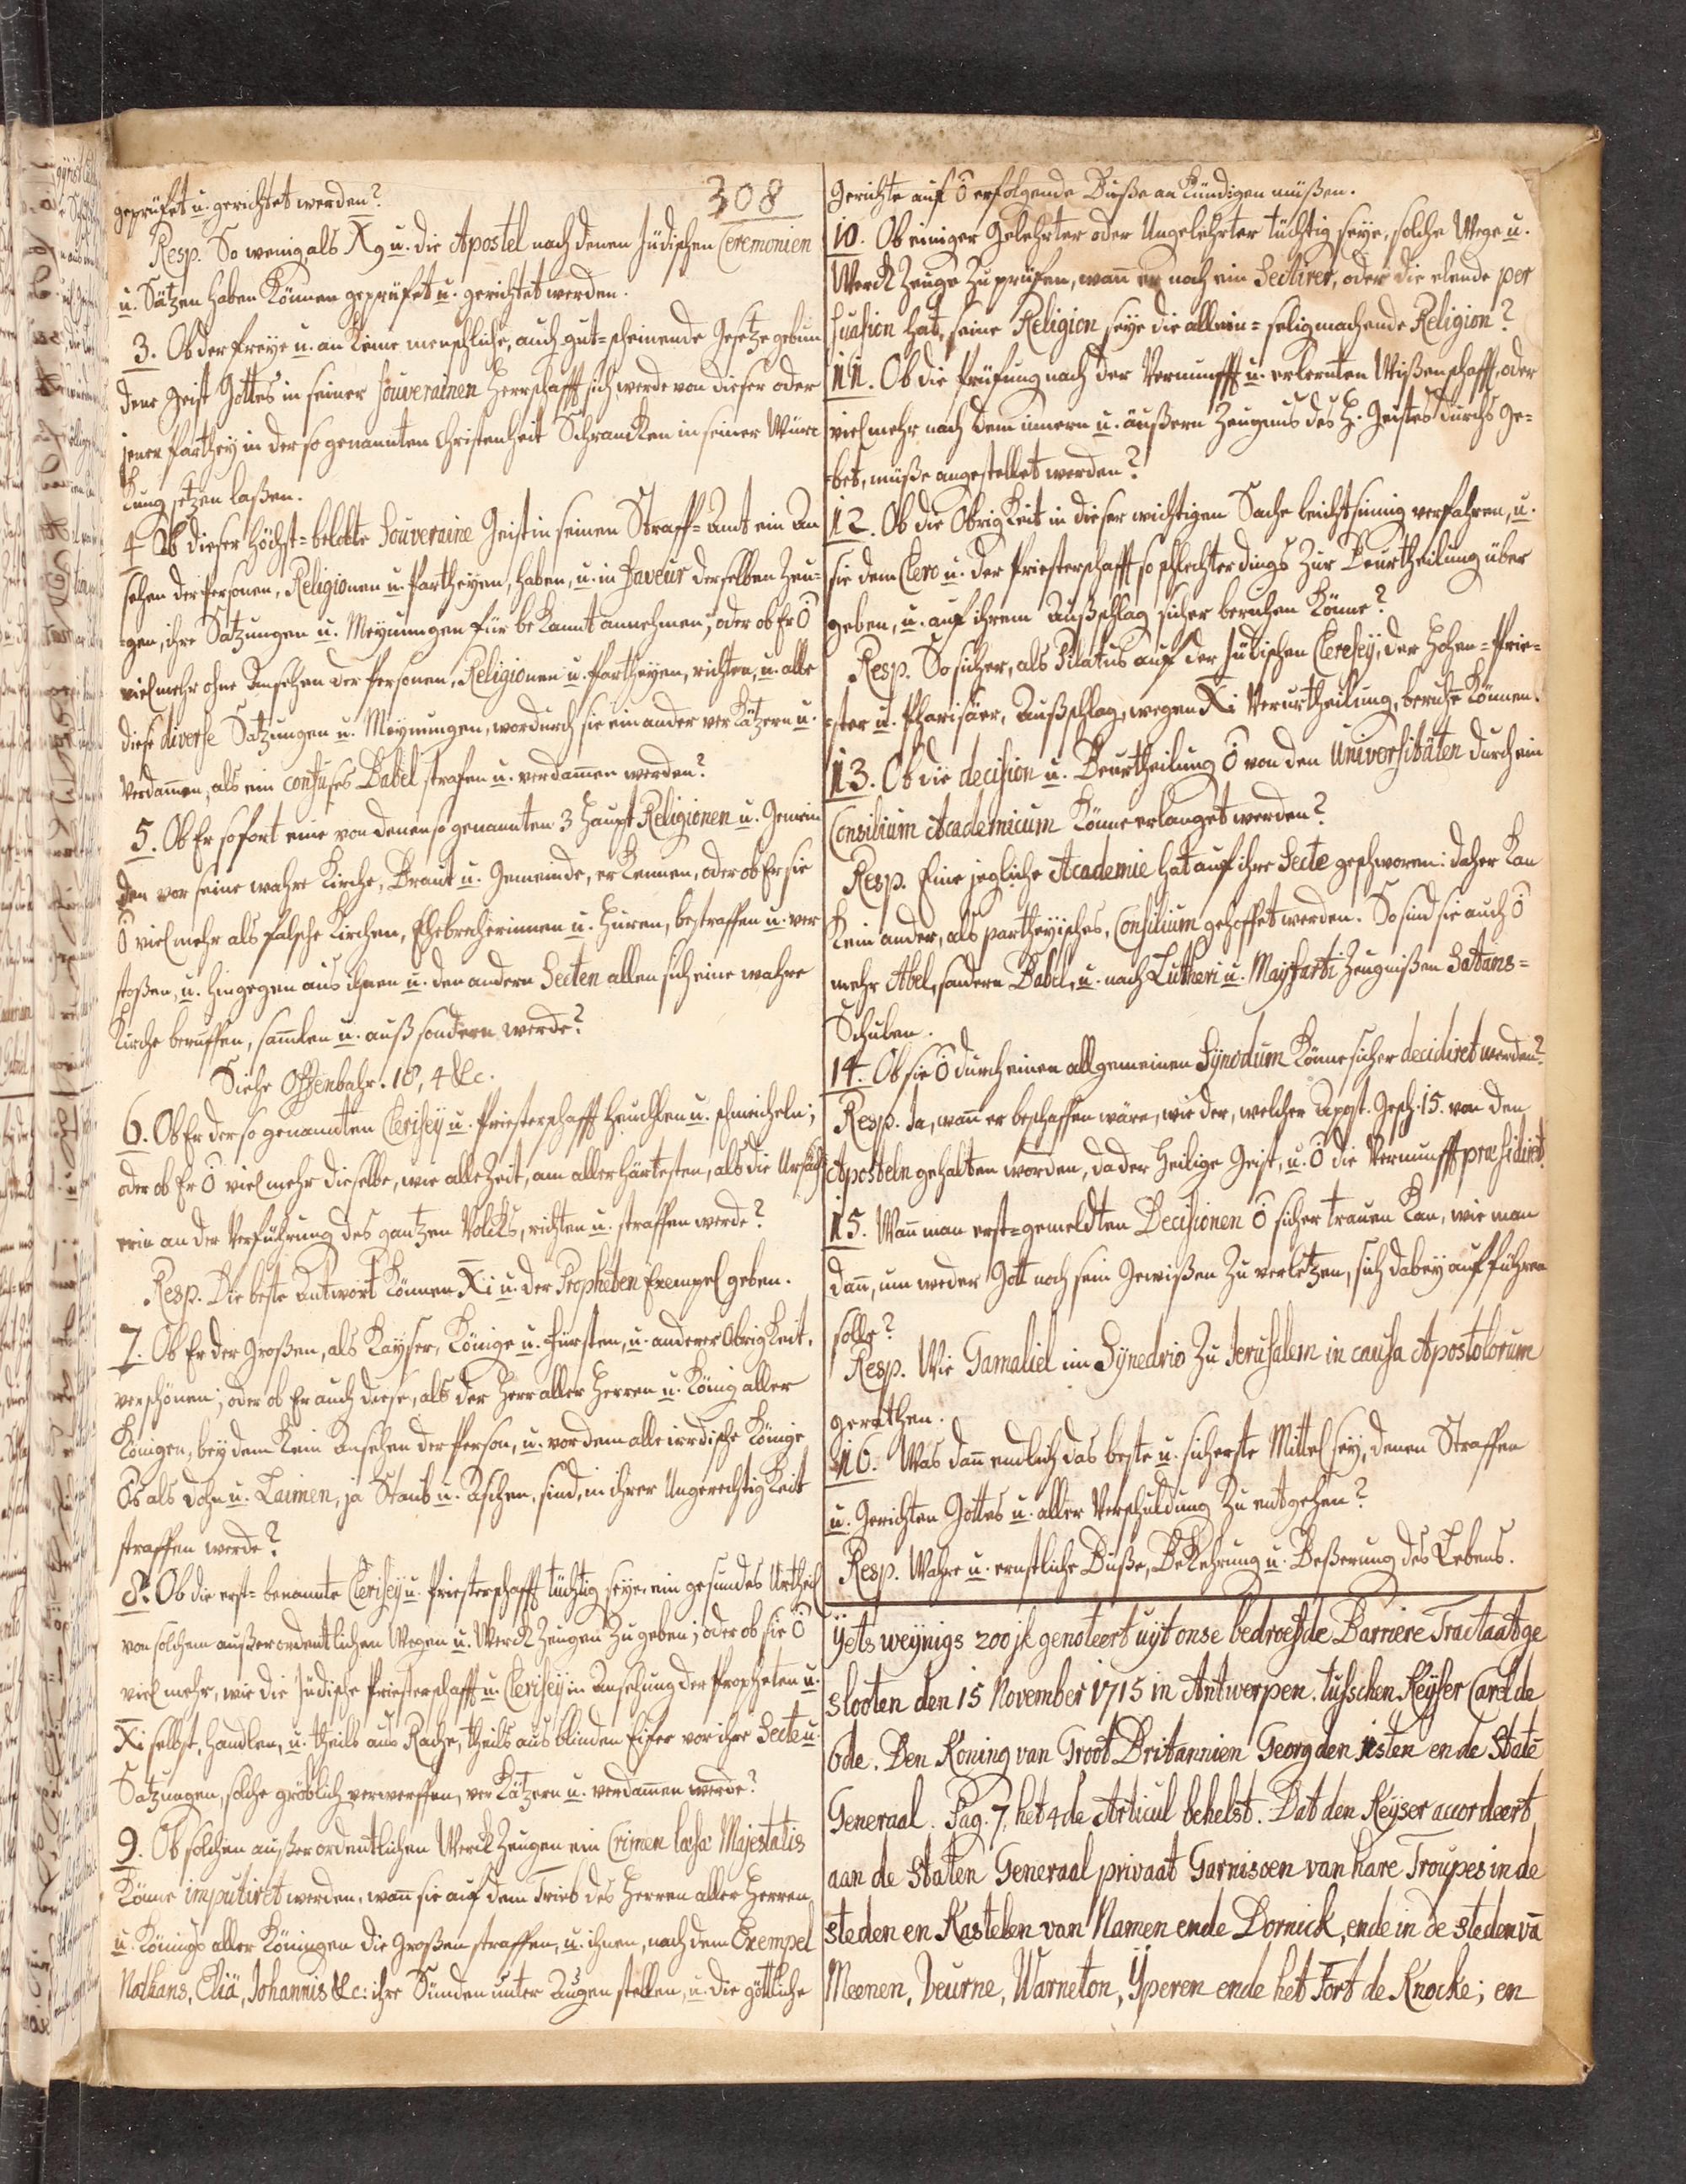 308
geprüfet u. gerichtet werden?
Resp. So wenig als X9 u. die Apostel nach denen Jüdischen Ceremonien
u. Sätzen haben können geprüfet u. gerichtet werden.
3. Ob der freye u. an keine menschliche, auch gut=scheinende Gesetze gebun
dene Geist Gottes in seiner souverainen Herrschafft sich werde von dieser oder
jener Parthey in der so genannten Christenheit Schrancken in seiner Würc
kung setzen laßen.
4 Ob dieser höchst=belobte Souveraine Geist in seinen Straff=Amt ein An
sehen der Personen, Religionen u. Partheyen, haben, u. in Faveur derselben Zeu=
gen, ihre Satzungen u. Meynungen für bekannt annehmen; oder ob Er Ō
vielmehr ohne Ansehen der Personen, Religionen u. Partheyen, richten, u. alle
diese diverse Satzungen u. Meynungen, wordurch sie einander verkätzern u.
verdam̄en, als ein confuses Babel strafen u. verdam̄en werden?
5. Ob Er sofort eine von denen so genannten 3 Haupt Religionen u. Gemein
den vor seine wahre Kirche, Braut u. Gemeinde, erkennen, oder ob Er sie
Ō vielmehr als falsche Kirchen, Ehebrecherinnen u. Huren, bestraffen u. ver
stoßen, u. hingegen aus ihnen u. den andern Secten allen sich eine wahre
Kirche beruffen, sam̄len u. auß sondern werde?
Siehe Offenbahr. 18, 4 &c.
6. Ob Er der so genannten Clerisey u. Priesterschafft heuchlen u. schmeicheln;
oder ob Er Ō vielmehr dieselbe, wie alle Zeit, am aller härtesten, als die Ursäch
erin an der Verführung des gantzen Volcks, richten u. straffen werde?
Resp. Die beste Antwort können Xi u. der Propheten Exempel geben.
7. Ob Er der Großen, als Kayser, Könige u. Fürsten, u. anderer Obrigkeit,
verschönen; oder ob Er auch diese, als der Herr aller Herren u. König aller
Königen, bey dem kein Ansehen der Person, u. vor dem alle irrdische Könige
Ōs als Dohn u. Laimen, ja Staub u. Aschen, sind, in ihrer Ungerechtigkeit
straffen werde?
8. Ob die erst=benannte Clerisey u. Priesterschafft tüchtig seye, ein gesundes Urtheil
von solchem außerordentlichen Wegen u. Werck Zeugen zu geben; oder ob sie Ō
vielmehr, wie die Jüdische Priesterschafft u. Clerisey in Ansehung der Propheten u.
Xi selbst, handlen, u. theils aus Rache, theils aus blinden Eifer vor ihre Secte u.
Satzungen, solche gröblich verwerffen, verkätzern u. verdam̄en werde?
9. Ob solchen außerordentlichen Werck Zeugen ein Crimen læsæ Majestatis
könne imputiret werden, wan̄ sie auf dem Trieb des Herren aller Herren
u. Königs aller Königen die Großen straffen, u. ihnen, nach dem Exempel
Nathans, Eliä, Johannis &c: ihre Sünden unter Augen stellen, u. die göttliche
Gerichte auf Ō erfolgende Buße ankündigen müßen.
10. Ob einiger Gelehrter oder Ungelehrter tüchtig seye, solche Wege u.
Werck Zeuge zu prüfen, wan̄ er noch ein Sectirer, oder die elende per
suasion hat, seine Religion seye die allein=seligmachende Religion?
11. Ob die Prüfung nach der Vernunfft u. erlernten Wißenschafft, oder
vielmehr nach dem innern u. äußern Zeugnis des H. Geistes durchs Ge=
bet, müße angestellet werden?
12. Ob die Obrigkeit in dieser wichtigen Sache leichtsinnig verfahren, u.
sie dem Clero u. der Priesterschafft so schlechterdings zur Beurtheilung über
geben, u. auf ihrem Außschlag sicher beruhen könne?
Resp. So sicher, als Pilatus auf der Jüdischen Cleresey, der Hohen=Prie=
ster u. Pharisäer, Außschlag, wegen Xi Verurtheilung, beruhē können.
13. Ob die decision u. Beurtheilung Ō von den Universitäten durch ein
Consilium Academicum könne erlanget werden?
Resp. Eine jegliche Academie hat auf ihre Secte geschworen: daher kan
kein ander, als partheyisches, Consilium gehoffet werden. So sind sie auch Ō
mehr Abel, sondern Babel, u. nach Lutheri u. Mayfarti Zeugnißen Satans=
Schulen.
14. Ob sie Ō durch einen allgemeinen Synodum könne sicher decidiret werden?
Resp. Ja, wan̄ er beschaffen wäre, wie der, welcher Apost. Gesch. 15. von den
Aposteln gehalten worden, da der Heilige Geist, u. Ō die Vernunfft præsidiret.
15. Wan̄ man erst=gemeldten Decisionen Ō sicher trauen kan, wie man
dan̄, um weder Gott noch sein Gewißen zu verletzen, sich dabey aufführen
solle?
Resp. Wie Gamaliel im Synedrio zu Jerusalem in causa Apostolorum
gerathen.
16. Was dan̄ endlich das beste u. sicherste Mittel sey, denen Straffen
u. Gerichten Gottes u. aller Verschuldung zu entgehen?
Resp. Wahre u. ernstliche Buße, Bekehrung u. Beßerung des Lebens.
Yets weynigs zoo jk genoteert uyt onse bedroefde Barriere Tractaat ge
slooten den 15 November 1715 in Antwerpen. tusschen Keyser Carel de
6de. Den Koning van Groot Britannien Georg den 1sten en de Statē
Generaal. Pag. 7. het 4de Articul behelst. Dat den Keyser accordeert
aan de Staten Generaal privaat Garnisoen van hare Troupes in de
steden en Kastelen van Namen ende Dornick, ende in de steden vā
Meenen, Veurne, Warneton, Yperen ende het Fort de Knocke; en